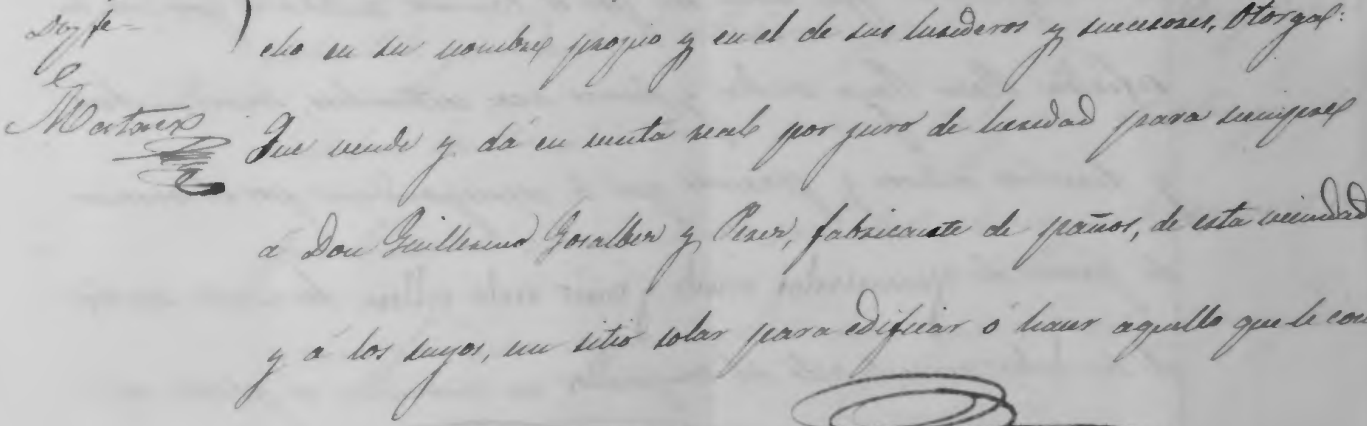 Doy fe
cho en su nombre propio y en el de sus herederos y succesores, Otorga:
Que vende y dá en venta real por juro de heredad para siempre
á Don Guillermo Gosalbez y Perez, fabricante de paños, de esta vecindad
y á los suyos, un sitio solar para edificar ó hacer aquello que le con